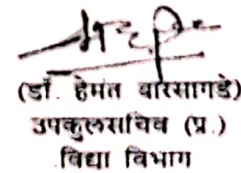 (डॉ. हेमंत बारसागडे)
उपकुलसचिव (प्र.)
विद्या विभाग